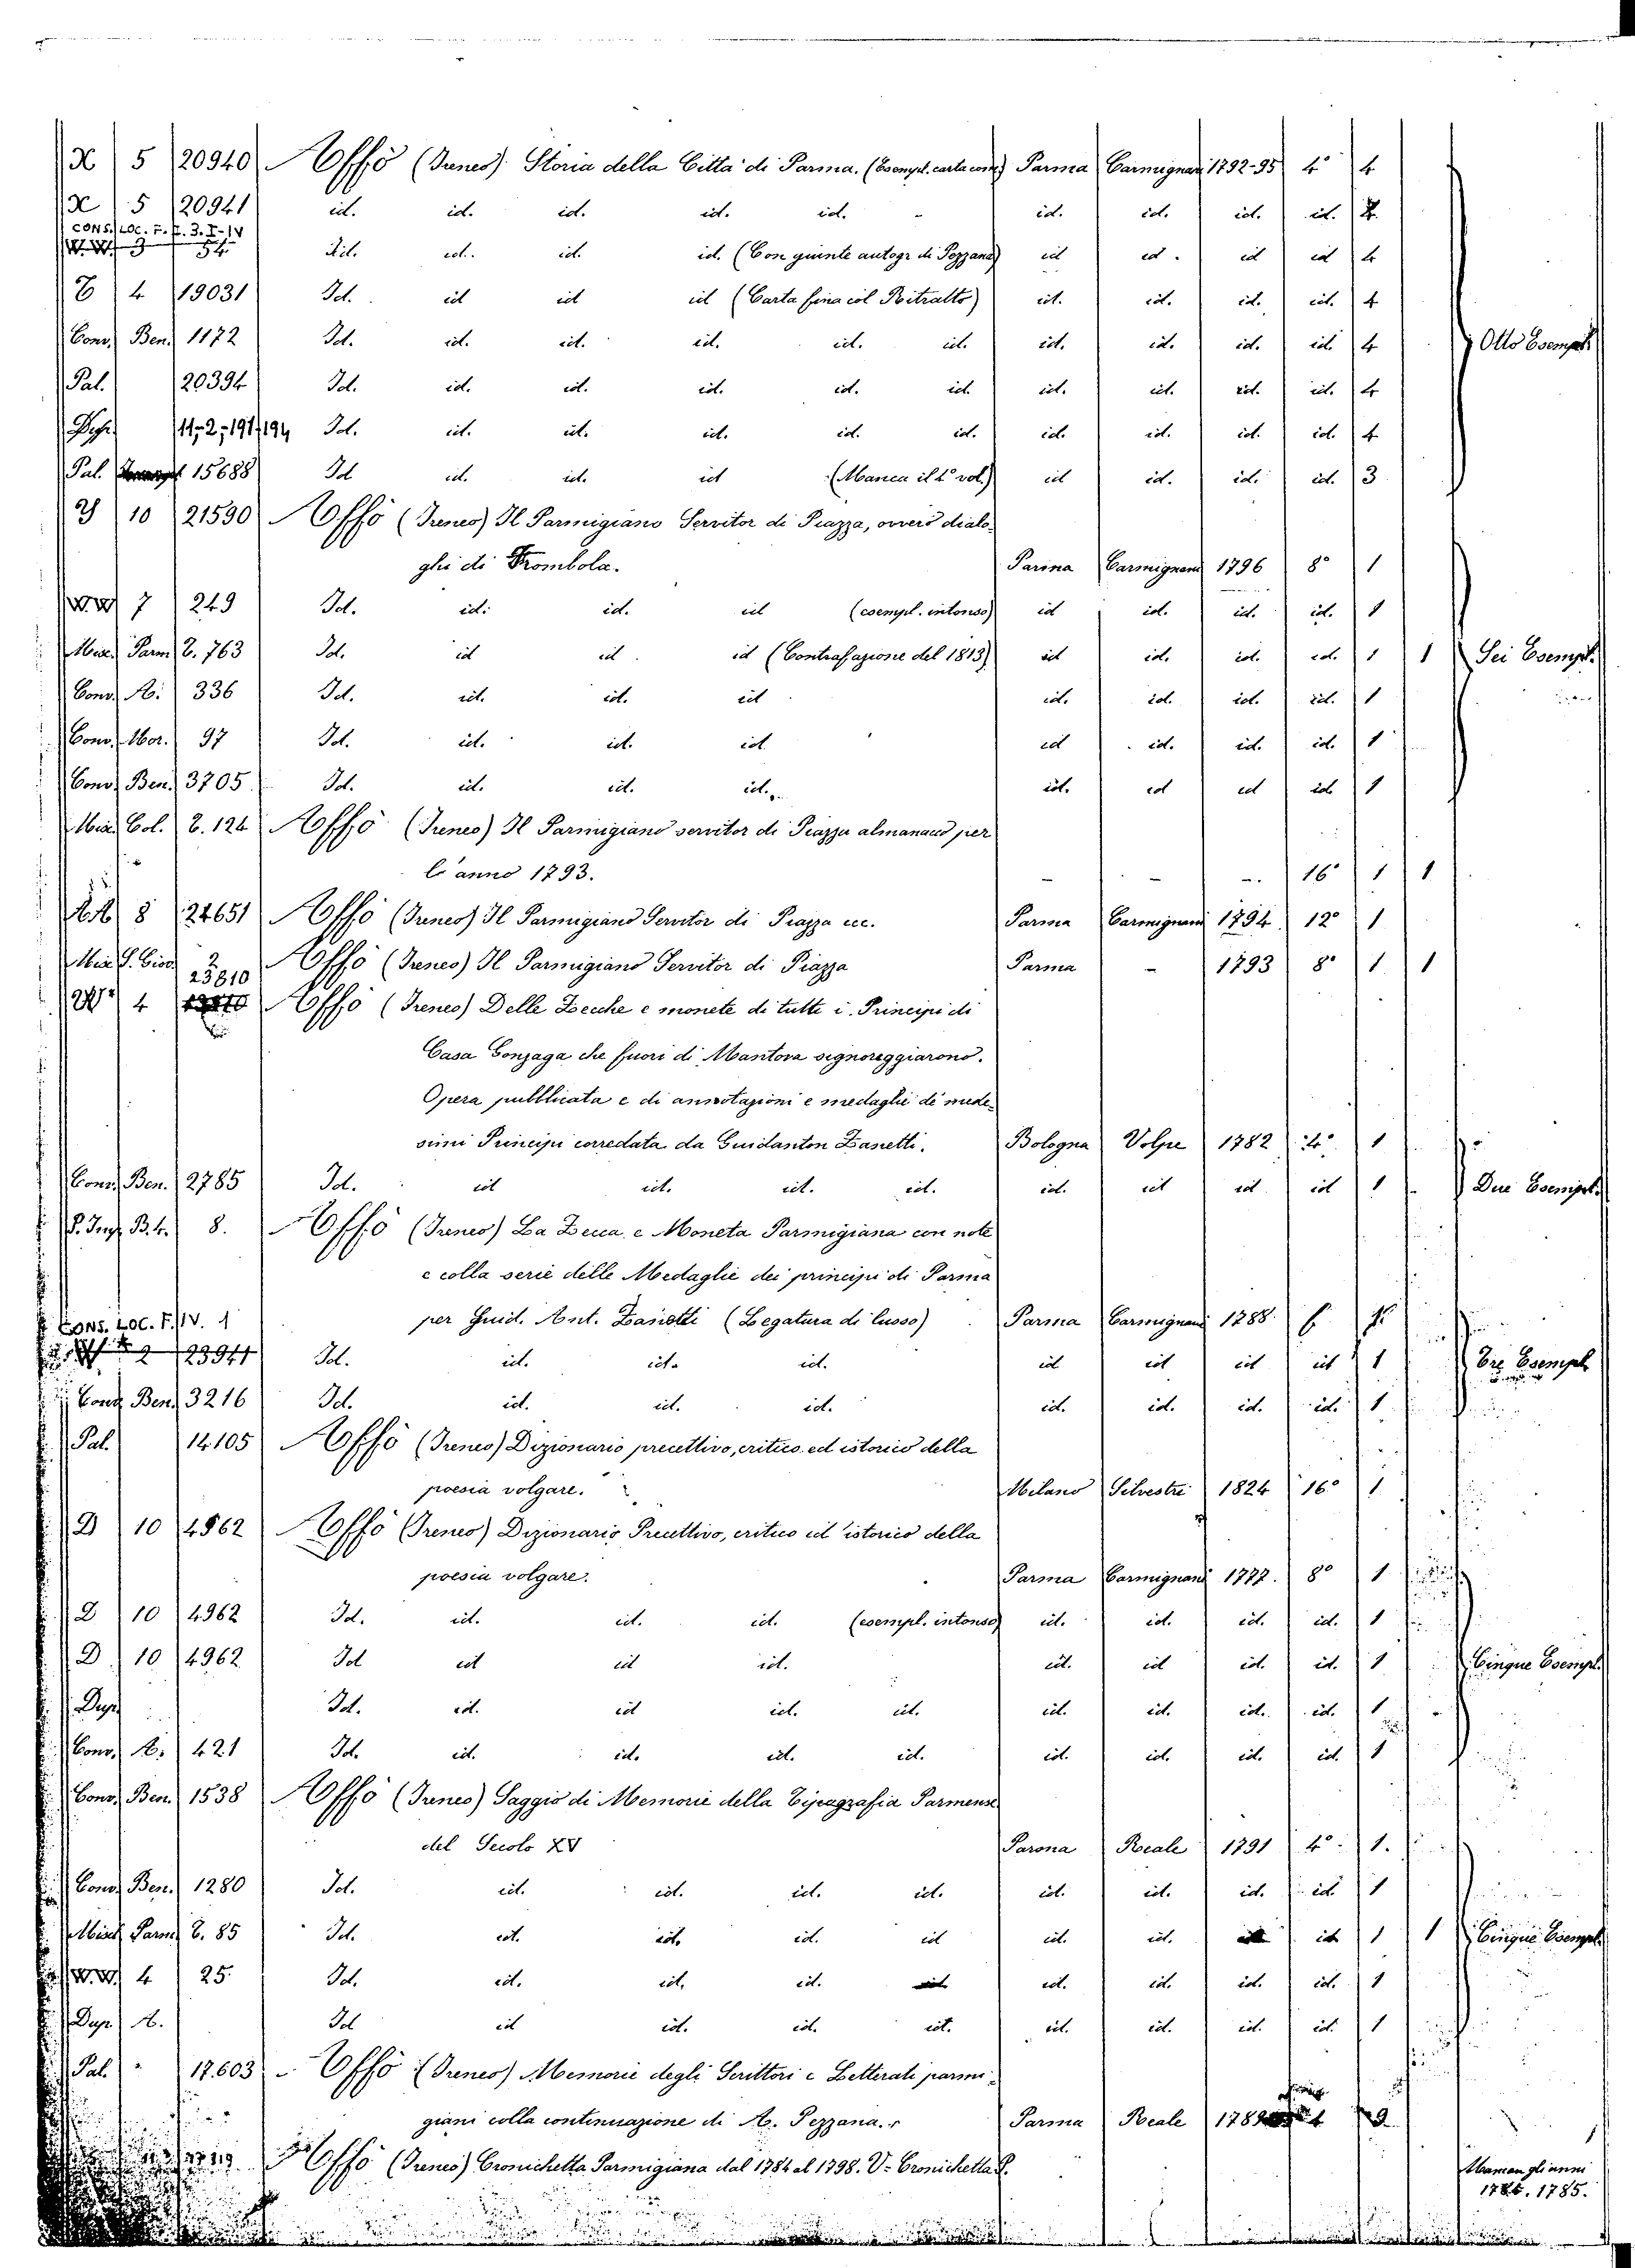 X 5 20940 Affò (Ireneo) Storia della Città di Parma. (Esempl. carta com.) Parma Carmignani 1792-95 4° 4
X 5 20941 id. id. id. id. id. id. id. id. id.
CONS. LOC. F. I. 3. I-IV
W.W. 3 54 Id. id. id. id. (Con giunte autogr di Pezzana) id id. id id 4
4 19031 Id. id id id (Carta fina col Ritratto) id. id. id. id. 4
Conv. Ben. 1172 Id. id. id. id. id. id. id. id. id. id. 4 Otto Esempl.
Pal. 20394 Id. id. id. id. id. id. id. id. id. id. 4
11-2-191/194 Id. id. id. id. id. id. id. id. id. id. 4
Pal. 15688 Id id. id. id (Manca il 1° vol.) id id. id. id. 3
10 21590 Affò (Ireneo) Il Parmigiano Servitor di Piazza, ovvero dialo-
ghi di Frombola. Parma Carmignani 1796 8° 1
W.W. 7 249 Id. id. id. id (esempl. intonso) id id. id. id. 1
Misc. Parm. 8. 763 Id. id id id (Contraffazione del 1813) id id. id. id. 1 1 Sei Esempl.
Conv. A. 336 Id. id. id. id id. id. id. id. 1
Conv. Mor. 97 Id. id. id. id id id. id. id. 1
Conv. Ben. 3705 Id. id. id. id. id. id id id 1
Misc. Col. 8. 124 Affò (Ireneo) Il Parmigiano servitor di Piazza almanacco per
l'anno 1793. — — — 16° 1 1
AA 8 24651 Affò (Ireneo) Il Parmigiano Servitor di Piazza ecc. Parma Carmignani 1794 12° 1
Misc. S. Giov. 2 Affò (Ireneo) Il Parmigiano Servitor di Piazza Parma — 1793 8° 1 1
23810
W* 4 Affò (Ireneo) Delle Zecche e monete di tutti i Principi di
Casa Gonzaga che fuori di Mantova signoreggiarono.
Opera pubblicata e di annotazioni e medaglie de' mede-
simi Principi corredata da Guidanton Zanetti. Bologna Volpe 1782 4° 1
Conv. Ben. 2785 Id. id id. id. id. id. id id id 1 Due Esempl.
P. Ing. B.4. 8. Affò (Ireneo) La Zecca e Moneta Parmigiana con note
e colla serie delle Medaglie dei principi di Parma
per Guid. Ant. Zanetti (Legatura di lusso) Parma Carmignani 1788
CONS. LOC. F. IV. 1
2 23941 Id. id. id. id. id id id id 1 Tre Esempl.
Conv. Ben. 3216 Id. id. id. id. id. id. id. id. 1
Pal. 14105 Affò (Ireneo) Dizionario precettivo, critico ed istorico della
poesia volgare. Milano Silvestri 1824 16° 1
D 10 4962 Affò (Ireneo) Dizionario Precettivo, critico ed istorico della
poesia volgare. Parma Carmignani 1777. 8° 1
D 10 4962 Id. id. id. id. (esempl. intonso) id. id. id. id. 1
D 10 4962 Id id id id. id. id id. id. 1 Cinque Esempl.
Dup. Id. id. id id. id. id. id. id. id. 1
Conv. A. 421 Id. id. id. id. id. id. id. id. id. 1
Conv. Ben. 1538 Affò (Ireneo) Saggio di Memorie della Tipografia Parmense
del Secolo XV Parma Reale 1791 4° 1.
Conv. Ben. 1280 Id. id. id. id. id. id. id. id. id. 1
Misc. Parm. 8. 85 Id. id. id. id. id id. id. id id 1 1 Cinque Esempl.
W.W. 4 25 Id. id. id. id. id id. id. id. id. 1
Dup. A. Id id id. id. id. id. id. id. id. 1
Pal. " 17.603 Affò (Ireneo) Memorie degli Scrittori e Letterati parmi-
giani colla continuazione di A. Pezzana. Parma Reale 1789
Affò (Ireneo) Cronichetta Parmigiana dal 1784 al 1798. V. Cronichetta P. Mancan gli anni
1785.